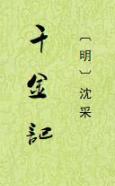 千金記
〔明〕沈采